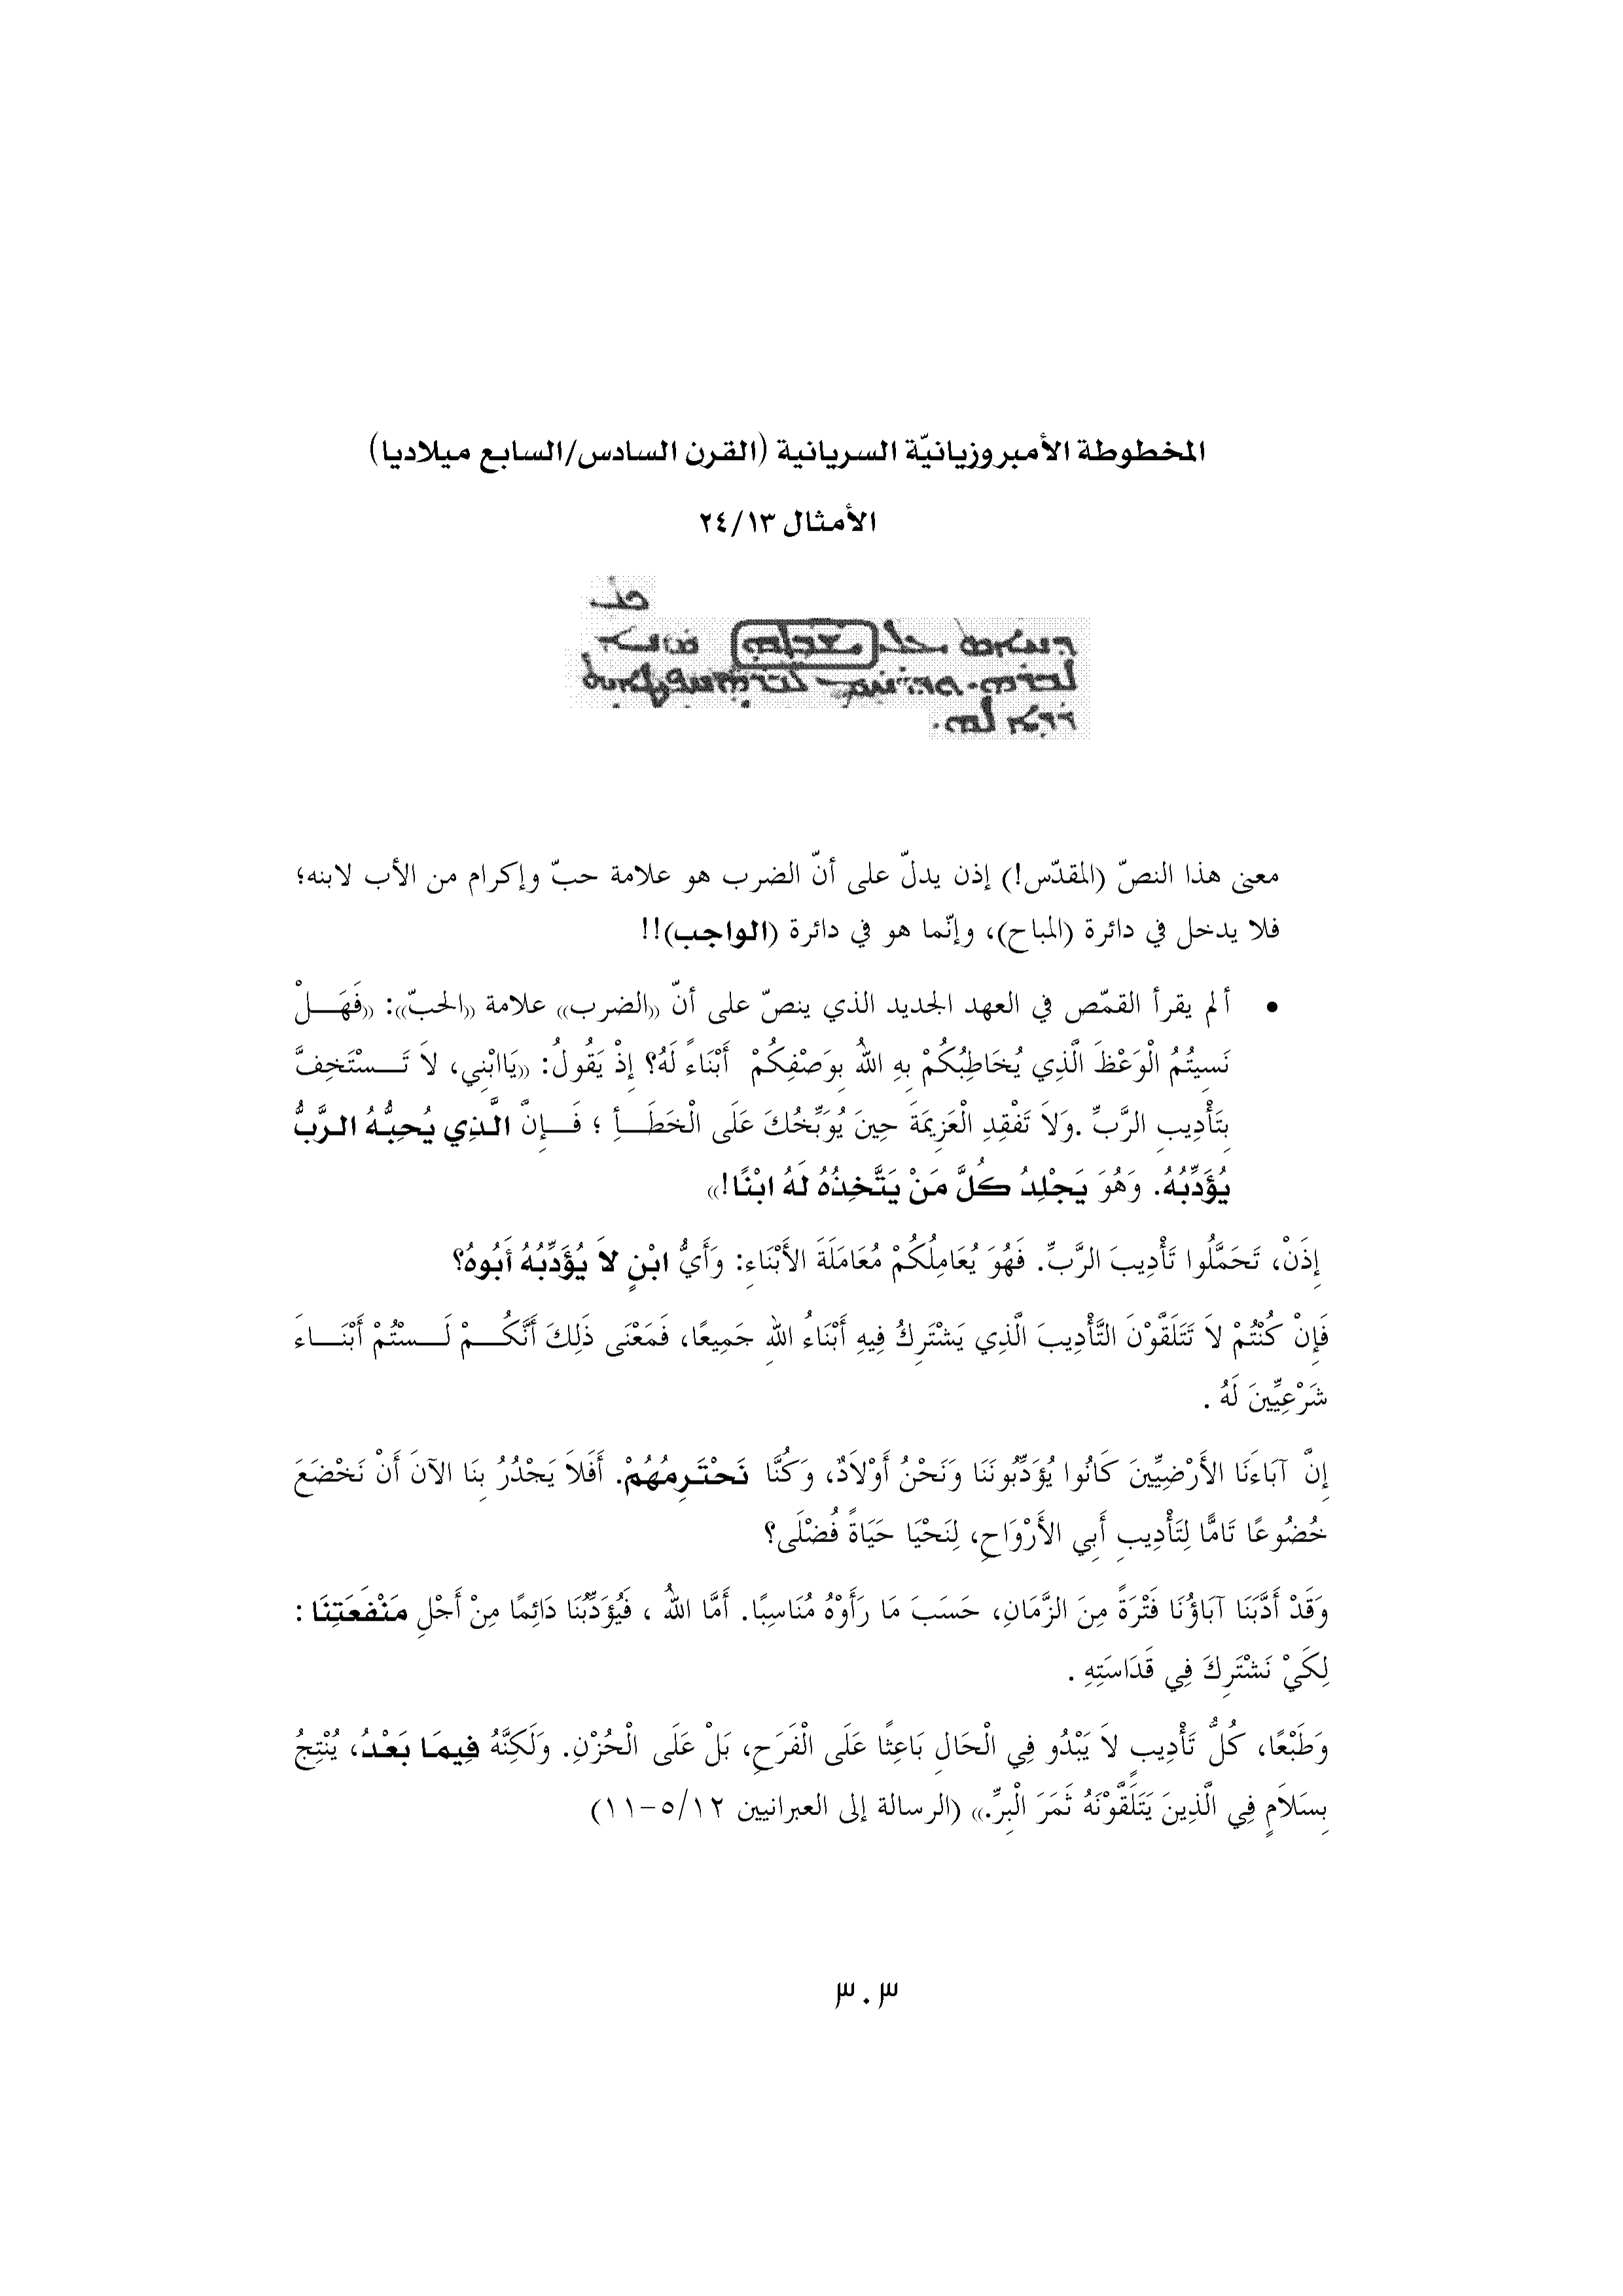 المخطوطة الأمبروزيانيّة السريانية (القرن السادس/السابع ميلاديا)
الأمثال ٢٤/١٣
معنى هذا النصّ (المقدّس!) إذن يدلّ على أنّ الضرب هو علامة حبّ وإكرام من الأب لابنه؛
فلا يدخل في دائرة (المباح)، وإنّما هو في دائرة (الواجب)!!
• ألم يقرأ القمّص في العهد الجديد الذي ينصّ على أنّ «الضرب» علامة «الحبّ»: «فَهَـــلْ
نَسِيتُمُ الْوَعْظَ الَّذِي يُخَاطِبُكُمْ بِهِ اللهُ بِوَصْفِكُمْ أَبْنَاءً لَهُ؟ إِذْ يَقُولُ: «يَاابْنِي، لاَ تَـــسْتَخِفَّ
بِتَأْدِيبِ الرَّبِّ .وَلاَ تَفْقِدِ الْعَزِيمَةَ حِينَ يُوَبِّخُكَ عَلَى الْخَطَـــأِ ؛ فَـــإِنَّ الَّذِي يُحِبُّهُ الرَّبُّ
يُؤَدِّبُهُ. وَهُوَ يَجْلِدُ كُلَّ مَنْ يَتَّخِذُهُ لَهُ ابْنًا!»
إِذَنْ، تَحَمَّلُوا تَأْدِيبَ الرَّبِّ. فَهُوَ يُعَامِلُكُمْ مُعَامَلَةَ الأَبْنَاءِ: وَأَيُّ ابْنٍ لاَ يُؤَدِّبُهُ أَبُوهُ؟
فَإِنْ كُنْتُمْ لاَ تَتَلَقَّوْنَ التَّأْدِيبَ الَّذِي يَشْتَرِكُ فِيهِ أَبْنَاءُ اللهِ جَمِيعًا، فَمَعْنَى ذَلِكَ أَنَّكُـــمْ لَـــسْتُمْ أَبْنَـــاءَ
شَرْعِيِّينَ لَهُ .
إِنَّ آبَاءَنَا الأَرْضِيِّينَ كَانُوا يُؤَدِّبُونَنَا وَنَحْنُ أَوْلاَدٌ، وَكُنَّا نَحْتَرِمُهُمْ. أَفَلاَ يَجْدُرُ بِنَا الآنَ أَنْ نَخْضَعَ
خُضُوعًا تَامًّا لِتَأْدِيبِ أَبِي الأَرْوَاحِ، لِنَحْيَا حَيَاةً فُضْلَى؟
وَقَدْ أَدَّبَنَا آبَاؤُنَا فَتْرَةً مِنَ الزَّمَانِ، حَسَبَ مَا رَأَوْهُ مُنَاسِبًا. أَمَّا اللهُ ، فَيُؤَدِّبُنَا دَائِمًا مِنْ أَجْلِ مَنْفَعَتِنَا :
لِكَيْ نَشْتَرِكَ فِي قَدَاسَتِهِ .
وَطَبْعًا، كُلُّ تَأْدِيبٍ لاَ يَبْدُو فِي الْحَالِ بَاعِثًا عَلَى الْفَرَحِ، بَلْ عَلَى الْحُزْنِ. وَلَكِنَّهُ فِيمَا بَعْدُ، يُنْتِجُ
بِسَلاَمٍ فِي الَّذِينَ يَتَلَقَّوْنَهُ ثَمَرَ الْبِرِّ.» (الرسالة إلى العبرانيين ١٢/٥-١١)
٣٠٣